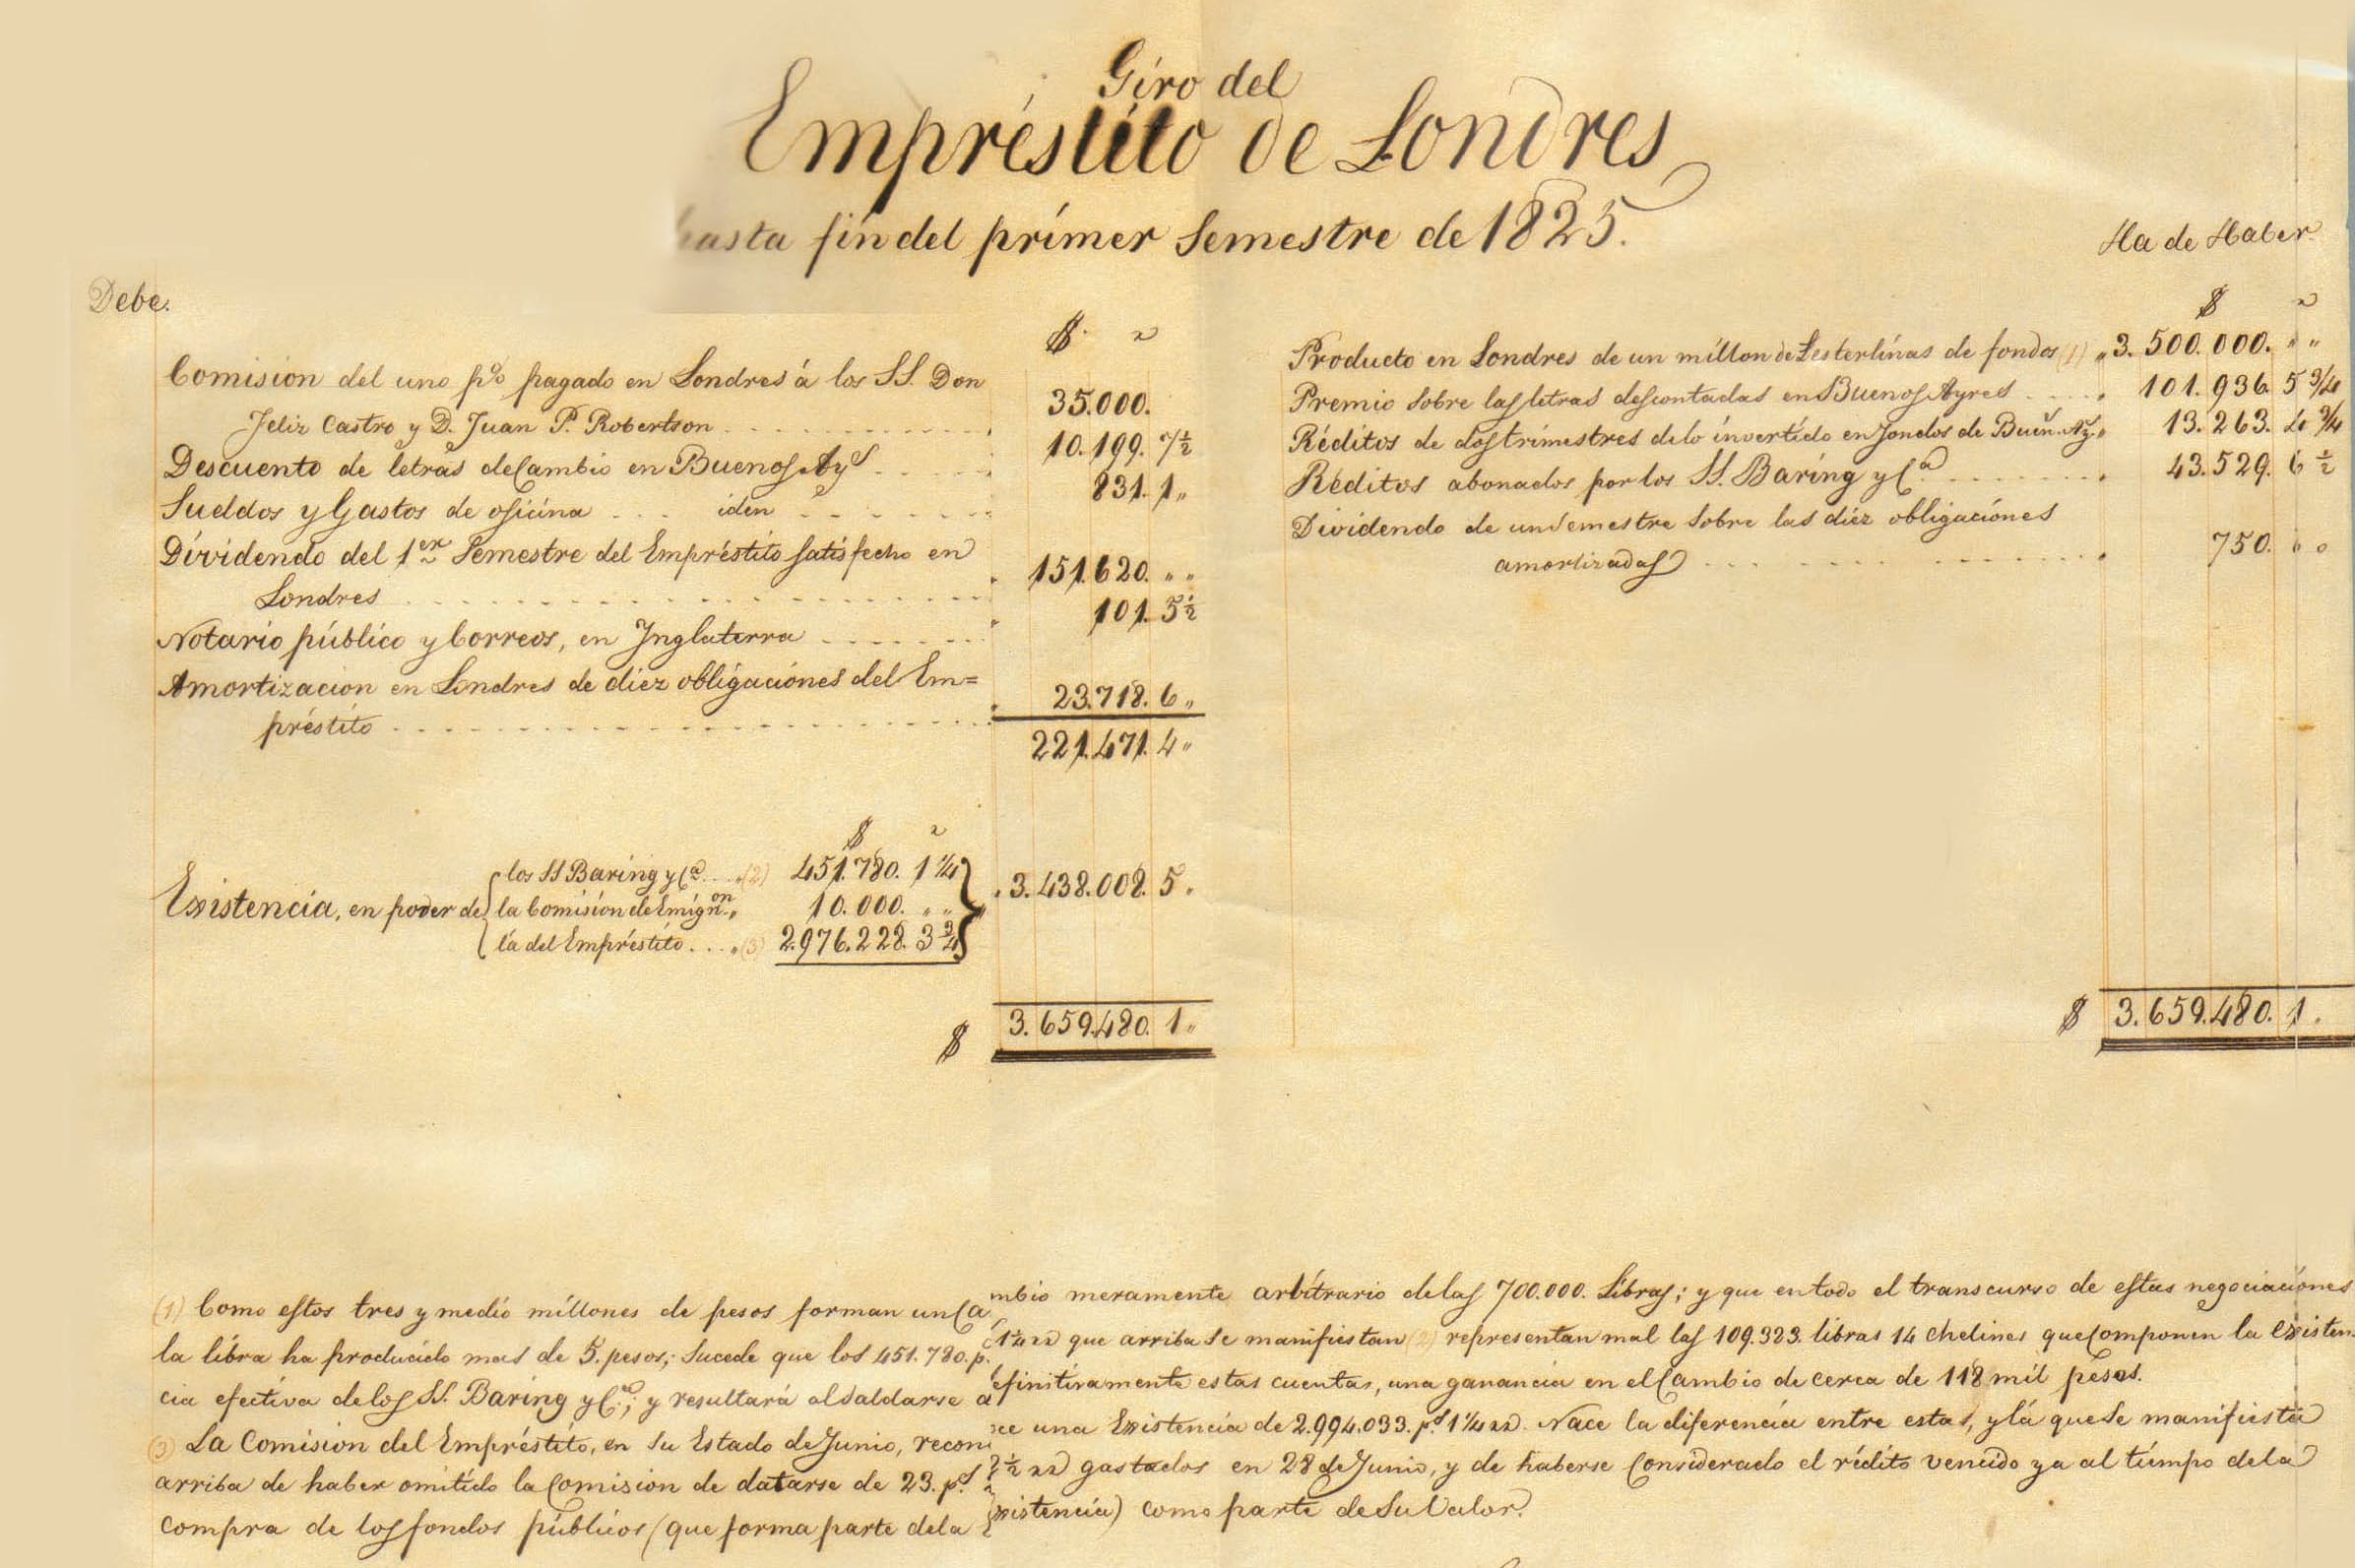 Giro del
Empréstito de Londres
hasta fin del primer Semestre de 1825.
Debe.
$ r
Comision del uno p% pagado en Londres á los SS. Don
Felix Castro y D. Juan P. Robertson 35.000.
Descuento de letras de Cambio en Buenos Ays 10.199. 7 1/2
Sueldos y Gastos de oficina iden 831. 1 „
Dividendo del 1er Semestre del Empréstito satisfecho en
Londres 151.620. „ „
Notario público y Correos, en Ynglaterra 101. 5 1/2
Amortizacion en Londres de diez obligaciónes del Em=
préstito 23.718. 6 „
221.471. 4 „
$ r
Existencia, en poder de
los SS Baring y Ca. (2) 451.780. 1 1/4
la Comisión de Emigron. „ 10.000. „ „
la del Empréstito. . . . „ (3) 2.976.228. 3 3/4
3.438.008. 5 „
$ 3.659.480. 1 „
Ha de Haber
$ r
Producto en Londres de un millon de £ esterlinas de fondos (1) „ 3.500.000. „ „
Premio sobre las letras descontadas en Buenos Ayres 101.936. 5 3/4
Réditos de dos trimestres de lo invertido en fondos de Buen. Ay. „ 13.263. 4 3/4
Réditos abonados por los SS. Baring y Ca. 43.529. 6 1/2
Dividendo de un Semestre sobre las diez obligaciónes
amortizadas 750. „ „
$ 3.659.480. 1 .
(1) Como estos tres y medio millones de pesos forman un Ca mbio meramente arbitrario de las 700.000. Libras; y que en todo el transcurso de estas negociaciónes
la libra ha producido mas de 5. pesos; Sucede que los 451.780. p. 1 1/4 rr que arriba se manifiestan (2) representan mal las 109.323. libras 14 chelines que Componen la existen.
cia efectiva de los SS. Baring y Ca.; y resultará al Saldarse definitivamente estas cuentas, una ganancia en el Cambio de cerca de 118 mil pesos.
(3) La Comision del Empréstito, en su Estado de Junio, recono ce una Existencia de 2.994.033. ps. 1 1/4 rr. Nace la diferencia entre esta, y lá que se manifiesta
arriba de haber omitido la Comision de datarse de 23. ps. 2 1/2 rr gastados en 28 de Junio, y de haberse Considerado el rédito vencido ya al tiempo de la
compra de los fondos públicos (que forma parte de la Existencia) como parte de su Valor.